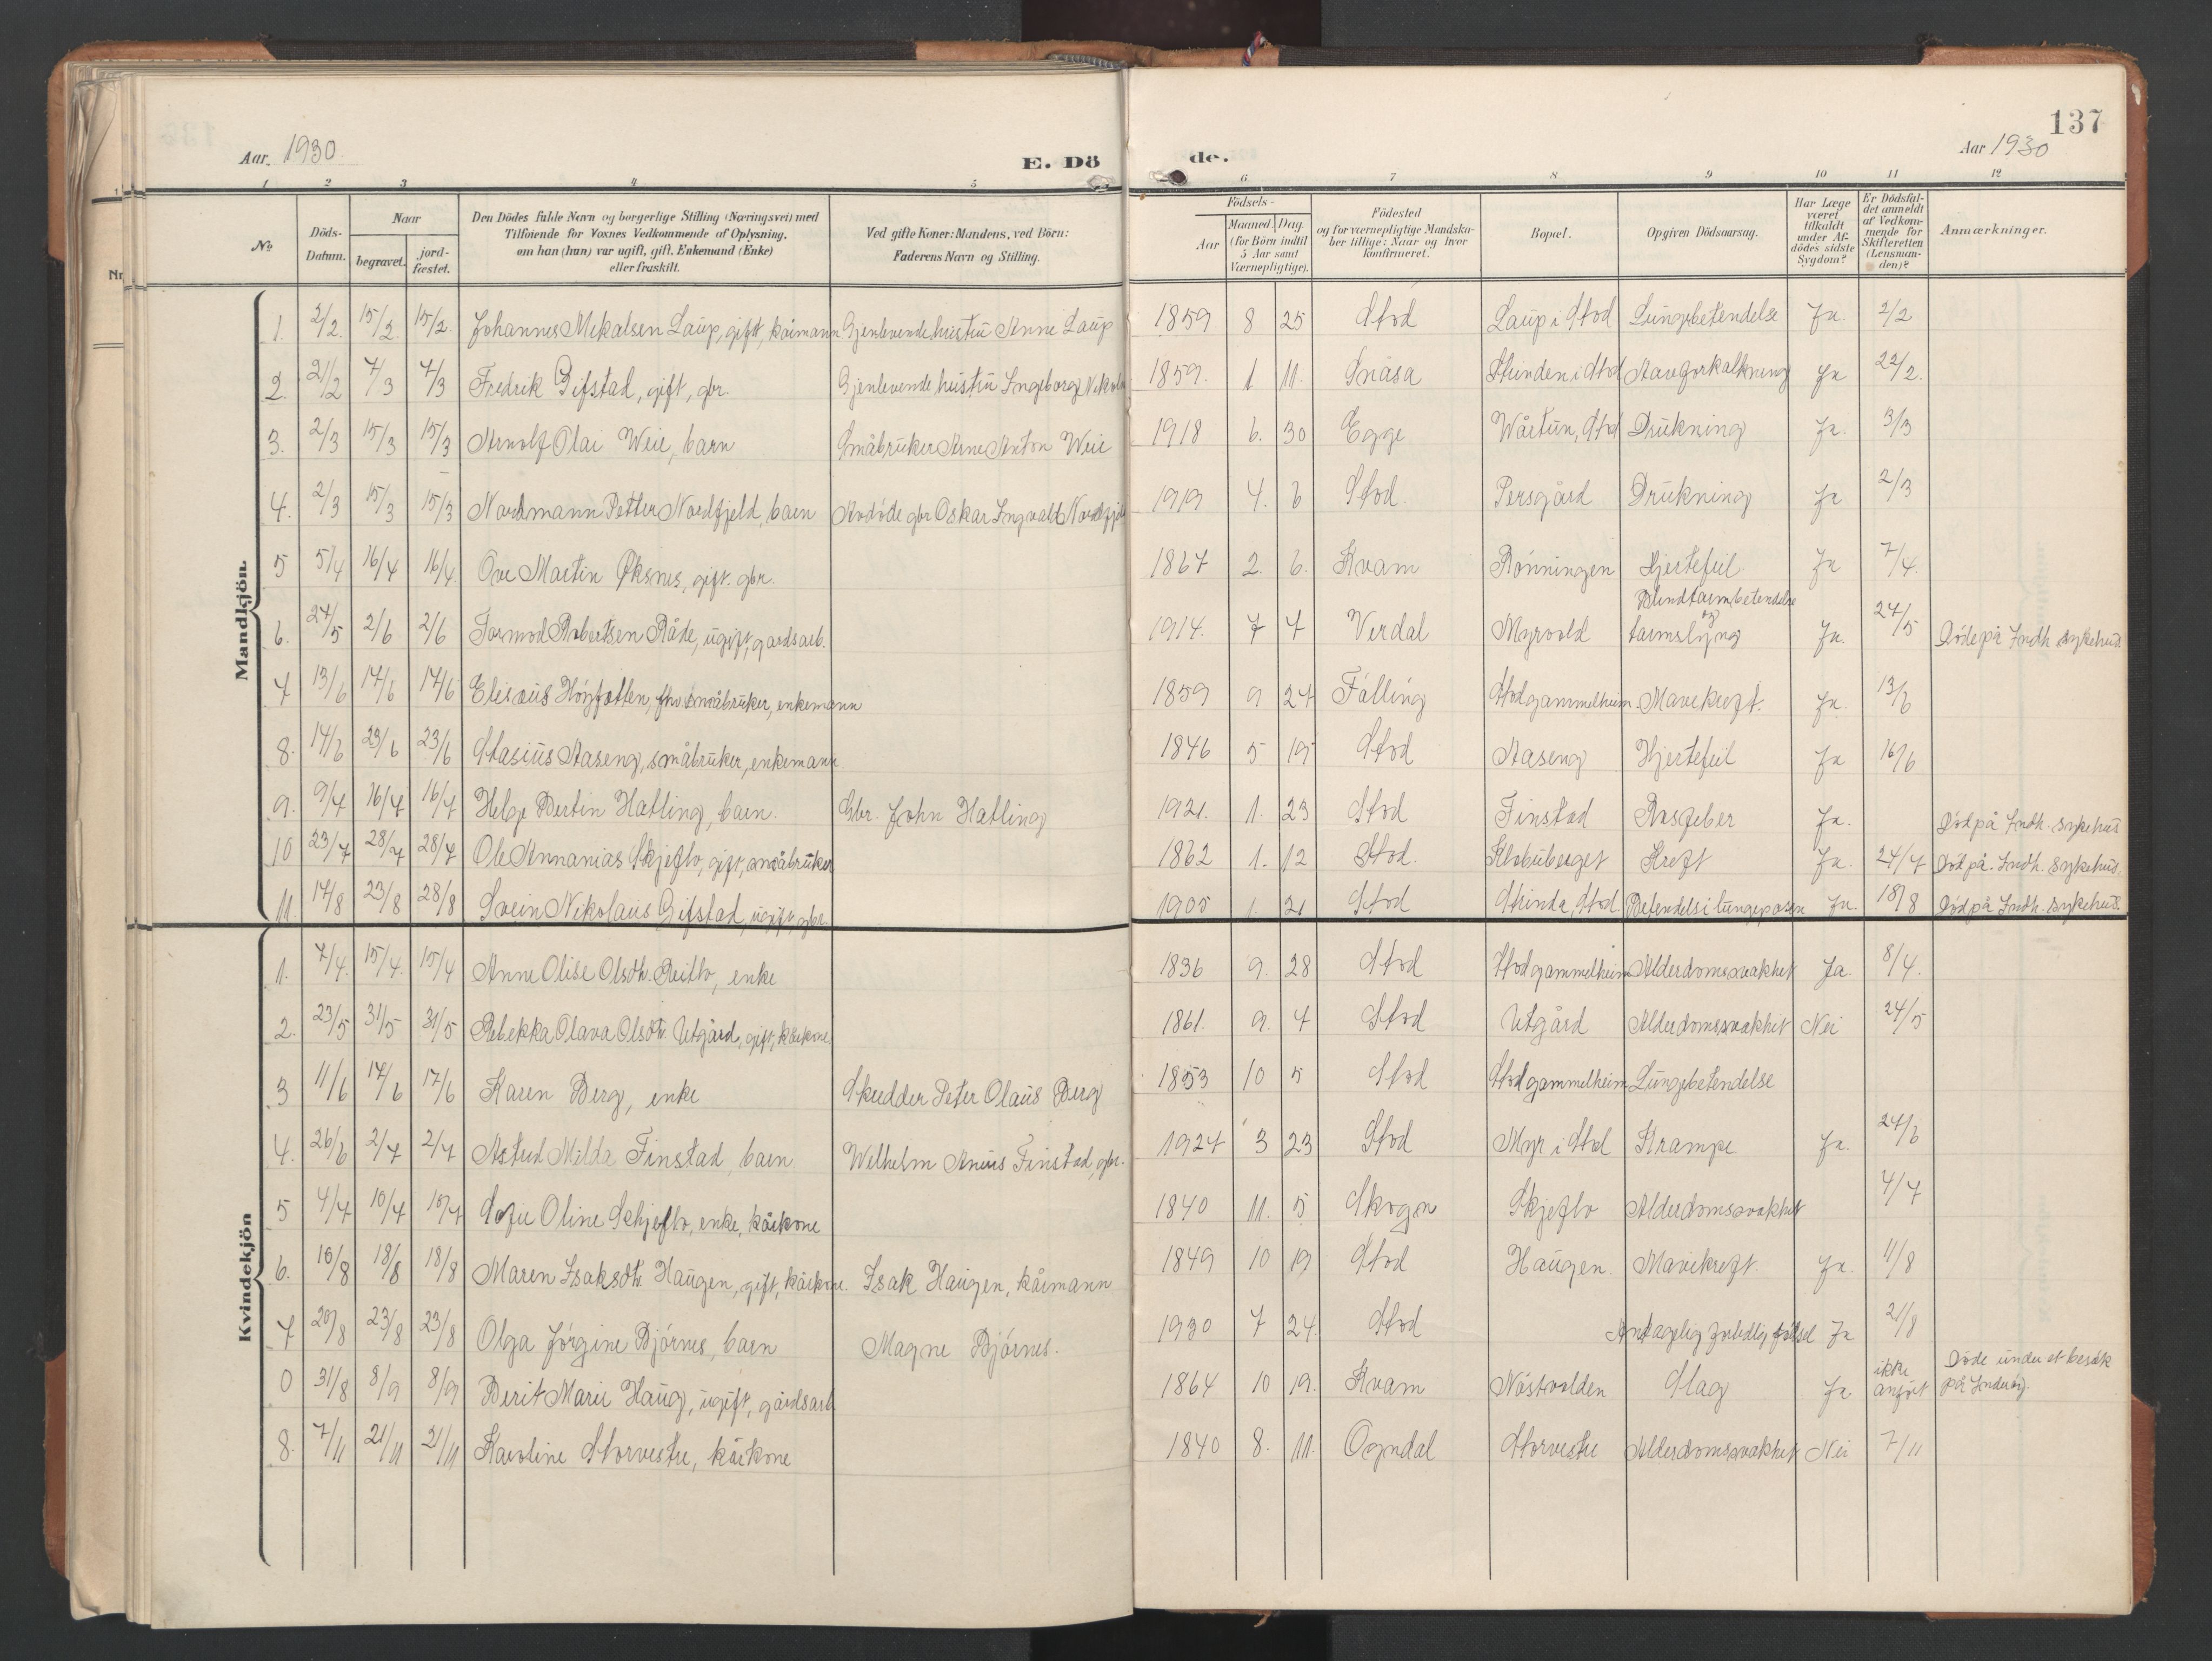 137
Aar 1930.
E. Dö
de.
Aar 1930
1 2 3 4 5 6 7 8 9 10 11 12
No
Döds-Datum.
Naar
begravet.
jord-fæstet.
Den Dödes fulde Navn og borgerlige Stilling (Næringsvei) med
Tilföiende for Voxnes Vedkommende af Oplysning,
om han (hun) var ugift, gift, Enkemand (Enke)
eller fraskilt.
Ved gifte Koner: Mandens, ved Börn:
Faderens Navn og Stilling.
Födsels-
Aar
Maaned. Dag.
(for Börn indtil
5 Aar samt
Værnepligtige).
Födested
og for værnepligtige Mandska-
ber tillige: Naar og hvor
konfirmeret.
Bopæl.
Opgiven Dödsaarsag.
Har Læge
været
tilkaldt
under Af-
dödes sidste
Sygdom?
Er Dödsfal-
det anmeldt
af Vedkom-
mende for
Skifteretten
(Lensman-
den)?
Anmærkninger.
Mandkjön.
1. 2/2. 15/2. 15/2. Johannes Mikalsen Laup, gift, kårmann Gjenlevende hustru Anne Laup 1859 8 25 Stod Laup i Stod Lungebetendelse Ja. 2/2
2. 21/2 7/3 7/3 Fredrik Gifstad, gift, gbr. Gjenlevende hustru Ingeborg 1859. 1 11. Snåsa Strinden i Stod Aareforkalkning Ja 22/2.
3. 2/3 15/3 15/3 Arnolf Olai Weie, barn Småbruker Arne Anton Weie 1918 6. 30 Egge Wårtun, Stod Drukning Ja. 3/3
4. 2/3 15/3 15/3 Nordmann Petter Nordfjeld, barn Avdøde gbr Oskar Ingvald Nordfjeld 1919 4. 6 Stod. Persgård Drukning Ja 2/3
5 5/4 16/4 16/4. Ove Martin Øksnes, gift. gbr. 1867 2. 6. Kvam Rønningen Hjertefeil Ja 7/4.
6. 24/5 2/6 2/6 Tormod Robertsen Råde, ugift, gardsarb. 1914. 7 7 Verdal Myrvold Blindtarmbetendelse og tarmslyng Ja. 24/5 Døde på Indh. sykehus.
7 13/6 17/6 17/6 Elisæus småbruker, enkemann 1859 9 27 Følling Stod gammelheim Mavekreft. Ja. 13/6
8. 14/6 23/6 23/6 Stasius Aaseng, småbruker, enkemann. 1846 5 19 Stod Aaseng Hjertefeil Ja 16/6
9. 9/7 16/7 16/7 Helge Bertin Hatling, barn. Gbr. John Hatling 1921. 1. 23 Stod Finstad Ja. Død på Indh. sykehus
10 23/7 28/7 28/7 Ole Annanias Skjeflo, gift, småbruker 1862 1. 12 Stod. Kreft Ja. 24/7 Død på. Indh. sykehus.
11. 17/8 23/8 28/8 Svein Nikolaus Gifstad, ugift, gbr. 1905 1. 21 Stod Strinda, Stod Betendels i lungeposen Ja. 18/8 Død på Indh. sykehus.
Kvindekjön
1. 7/4. 15/4. 15/4 Anne Olise Olsdtr. Reitlo, enke 1836 9. 28 Stod Stod gammelheim Alderdomssvakhet Ja. 8/4.
2. 23/5 31/5 31/5 Rebekka Olava Olsdtr. Utgård, gift, kårkone. 1861. 9. 7 Stod Utgård Alderdomssvakhet Nei 24/5
3 11/6 17/6 17/6 Karen Berg, enke Skredder Peter Olaus Berg 1853 10 5 Stod Stod gammelheim Lungebetendelse
4. 26/6 2/7 2/7 Astrid Milda Finstad barn Wilhelm Finstad, gbr. 1927 3 23 Stod Myr i Stod Krampe Ja. 27/6
5 4/7 10/7 10/7 Sofie Oline Schjeflo, enke, kårkone 1840 11. 5 Skogn Skjeflo Alderdomssvakhet 4/7
6. 10/8 18/8 18/8 Maren Isaksdtr. Haugen, gift, kårkone. Isak Haugen, kårmann 1849 10 19 Stod Haugen. Mavekreft. Ja. 11/8
7 20/8 23/8 23/8 Olga Jørgine Bjørnes, barn Magne Bjørnes. 1930 7 24. Stod Ja 21/8
0 31/8 8/9 8/9 Berit Marie Haug, ugift, gårdsarb 1864 10 19. Kvam Nøstvolden Slag Ja ikke anført Døde under et besøk på Inderøy.
8. 7/11 21/11 21/11 Karoline Storvestre, kårkone 1840 8. 11. Ogndal Storvestre Alderdomssvakhet Nei 7/11